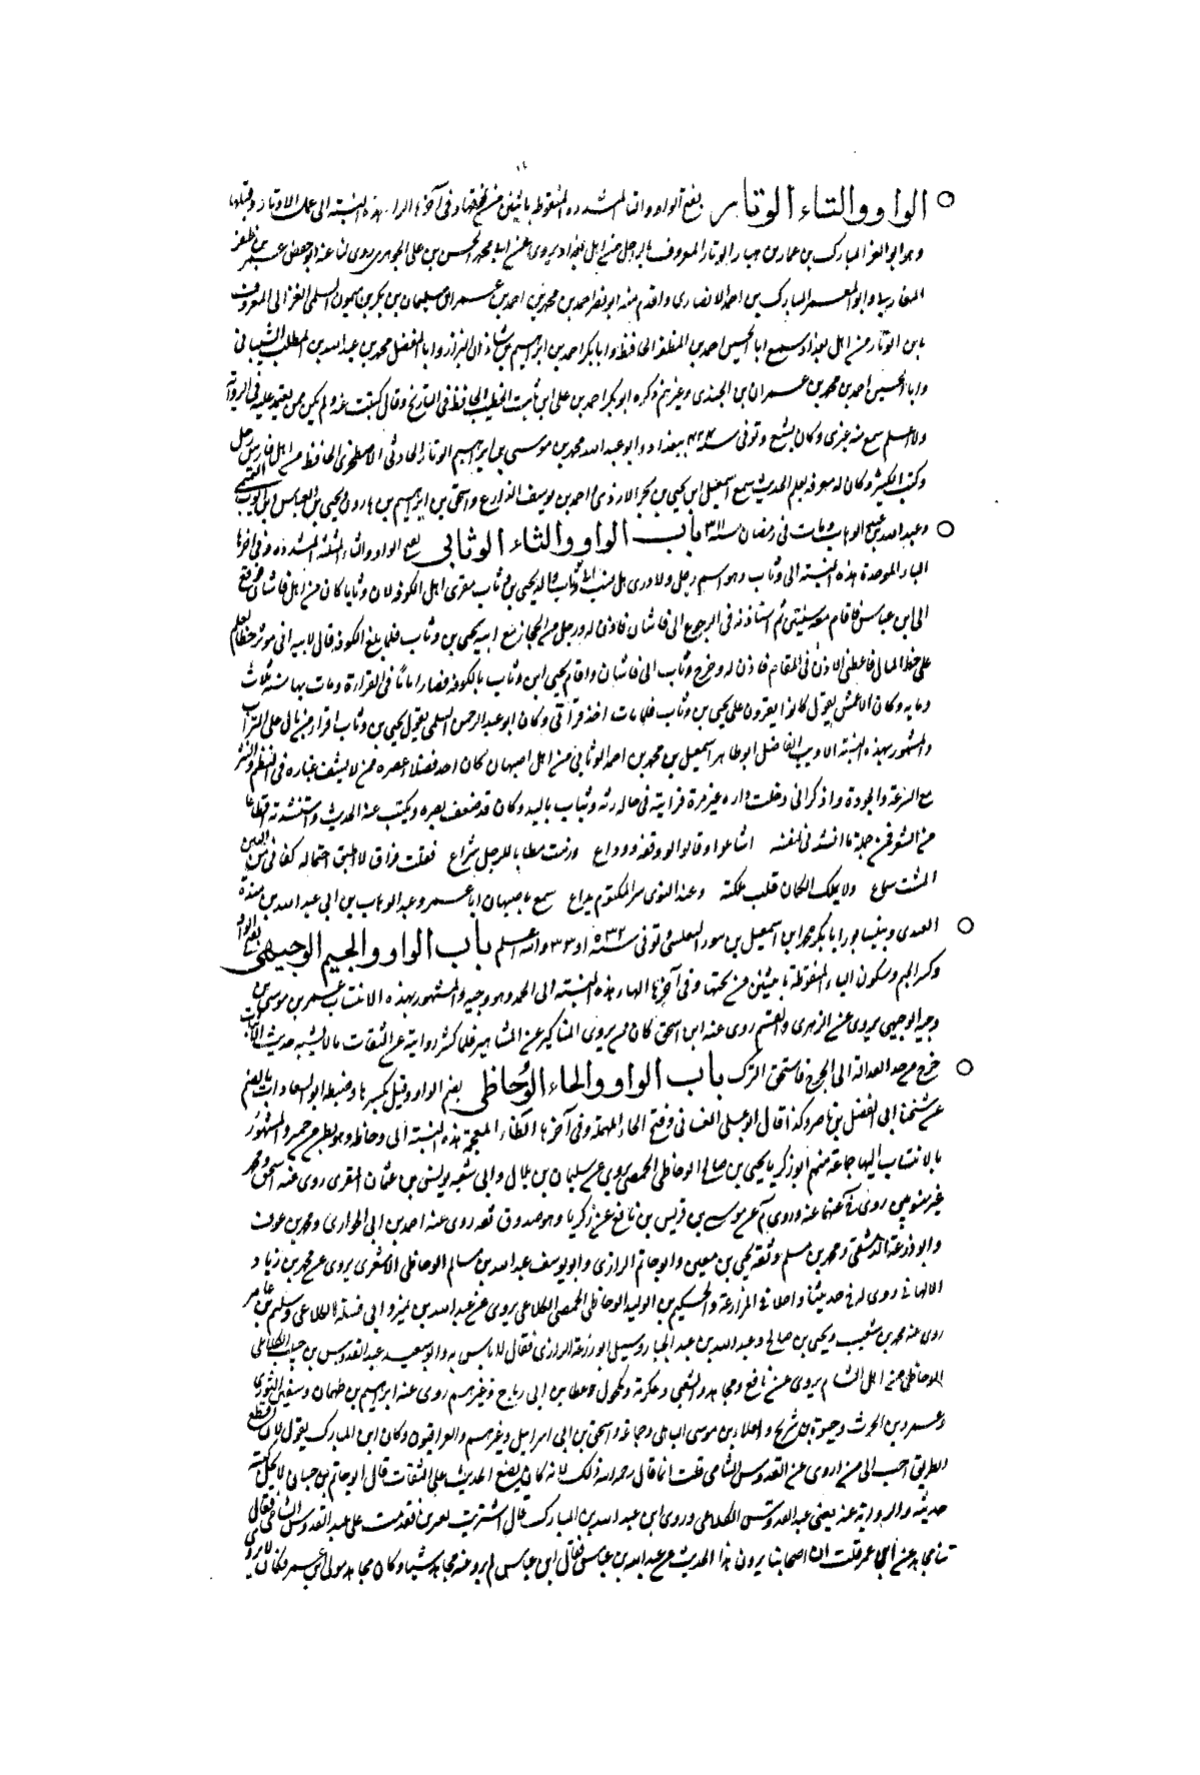 الواو والتاء الوتار بفتح الواو والتاء المشددة المنقوطة باثنتين من فوقها وفي آخرها الراء هذه النسبة الى عمل الاوتار وفتلها
وهو ابو العز المبارك بن عمار بن الوتار المعروف من اهل بغداد يروى عن ابى محمد الحسن بن على الجوهرى روى لنا عنه ابو حفص عمر بن ظفر
المغازلى وابو المعمر المبارك بن احمد الانصارى واقدم منه ابو نصر احمد بن محمد بن احمد بن عمر ان سليمان بن بكر بن ميمون السلمى الغزالى المعروف
بابن الوتار من اهل بغداد سمع ابا الحسين احمد بن المظفر الحافظ وابا بكر احمد بن ابراهيم بن شاذان البزاز وابا المفضل محمد بن عبد الله بن المطلب الشيبانى
وابا الحسن احمد بن محمد بن عمران بن الجندى وغيرهم ذكره ابو بكر احمد بن على ابن ثابت الخطيب الحافظ فى التاريخ وقال كتبت عنه ولم يكن ممن يعتمد عليه فى الرواية
ولا اعلم سمع منه غيرى وكان يتشيع وتوفى سنة ببغداد وابو عبد الله محمد بن موسى بن ابراهيم الوتار الاصطخرى الحافظ من اهل فارس رحل
وكتب الكثير وكان له معرفة بعلم الحديث سمع اسمعيل ابن يحيى بن بحر الازدى احمد بن يوسف واسحق بن ابراهيم بن هارون يحيى بن العباس ابن ايوب
وعبد الله بن الوهاب ومات فى رمضان سنة ٣١١ باب الواو والثاء الوثابى بفتح الواو والثاء المثلثة المشددة وفى اخرها
الباء الموحدة هذه النسبة الى وثاب وهو اسم رجل ولا ادرى هل ينسب الى وثاب والد يحيى بن وثاب مقرى اهل الكوفة لان وثابا كان من اهل قاشان وقع
الى ابن عباس فاقام معه سنين ثم استاذنه فى الرجوع الى قاشان فاذن له ورحل من الحجاز مع ابنه يحيى بن وثاب فلما بلغ الكوفة قال لابيه انى موثر حظ العلم
على حظ المال فاعطنى الاذن فى المقام فاذن له وخرج وثاب الى قاشان واقام يحيى ابن وثاب بالكوفة فصار اماما فى القراءة ومات بها سنة ثلاث
وماية وكان الاعمش يقول كانوا يقرون على يحيى بن وثاب فلما مات اخذ وكان ابو عبد الرحمن السلمى يقول يحيى بن وثاب اقرا من بال على التراب
والمشهور بهذه النسبة الاديب الفاضل ابو طاهر اسمعيل بن محمد بن احمد الوثابى من اهل اصبهان كان احد فضلاء عصره ممن لا يشق غباره فى النظم والنثر
مع السرعة والجودة واذكر انى دخلت داره غير مرة فرايته فى حالة رثة وثياب بالية وكان قد ضعف بصره وكتب عنه الحديث واستنشدته قطعا
من الشعر فمن جملة ما انشدنى لنفسه اشاعوا وقالوا وقفة ووداع وزمت مطايا للرحيل سراع فقلت فراق لا اطيق احتماله كفانى من البين
المشت سماع ولا يملك الكتمان قلب ملكته وعند النوى سر المكتوم يذاع سمع باصبهان ابا عمرو عبد الوهاب بن ابى عبد الله بن مندة
العبدى وبنيسابور ابا بكر محمد ابن اسمعيل بن توفى سنة ٥٣٢ او ٥٣٣ والله اعلم باب الواو والجيم الوجيهى بفتح الواو
وكسر الجيم وسكون الياء المنقوطة باثنتين من تحتها وفى آخرها الهاء هذه النسبة الى الجد وهو وجيه والمشهور بهذه الانتساب عمر بن موسى بن
وجيه الوجيهى يروى عن الزهرى والقسم روى عنه ابن اسحق كان ممن يروى المناكير عن المشاهير فلما كثر روايته عن الثقات ما لا يشبه حديث الاثبات
خرج من حد العدالة الى الجرح فاستحق الترك باب الواو والحاء الوحاظى بضم الواو وقيل بكسرها وضبطه ابو السعادات بالضم
عن شيخنا ابى الفضل بن ناصر وكذا قال ابو على الغسانى وفتح الحاء المهملة وفى آخرها الظاء المعجمة هذه النسبة الى وحاظة وهو بطن من حمير والمشهور
بالانتساب اليها جماعة منهم ابو زكريا يحيى بن صالح الوحاظى الحمصى يروى عن سليمان بن بلال وابى شعبة يونس بن عثمان المقرى روى عنه اسحق ومحمد
غير منسوبين روى عنهما عنه وروى عن موسى بن قريش بن نافع عن زكريا وهو صدوق ثقة روى عنه احمد بن ابى الحوارى ومحمد بن عوف
وابو زرعة الدمشقى ومحمد بن مسلم وثقه يحيى بن معين وابو حاتم الرازى وابو يوسف عبد الله بن سالم الوحاظى الاشعرى يروى عن محمد بن زياد
الالهانى روى له فى حديثا واحدا فى المزارعة والحكيم بن الوليد الوحاظى الحمصى الكلاعى يروى عن عبد الله بن وابى الكلاعى وسليم بن عامر
روى عنه محمد بن شعيب ويحيى بن صالح وعبد الله بن عبد الجبار وسئل ابو زرعة الرازى فقال لا باس به وابو سعيد عبد القدوس بن حبيب الكلاعى
الوحاظى من اهل الشام يروى عن نافع ومجاهد والشعبى وعكرمة ومكحول وعطا بن ابى رباح وغيرهم روى عنه ابراهيم بن طهمان وسفين الثورى
وعمرو بن الحرث وحيوة بن شريح والعلاء بن موسى وجماعة واسحق بن ابى اسرائيل وغيرهم والعراقيون وكان ابن المبارك يقول لان اقطع
الطريق احب الى من ان اروى عن عبد القدوس الشامى قلت انما قال رحمه الله ذلك لانه كان يضع الحديث على الثقات قال ابو حاتم بن حبان لا يحل كتبة
حديثه والرواية عنه يعنى عبد القدوس الكلاعى وروى ابن عبد الله بن المبارك قال اشتريت بعيرين فقدمت على عبد القدوس الشامى فقال
ثنا مجاهد عن ابن عمر فقلت ان اصحابنا يرون هذا الحديث عن عبد الله بن عباس فقال ابن عباس لم يرو عنه مجاهد شيا وكان مجاهد مولى ابن عمر فكان لا يروى